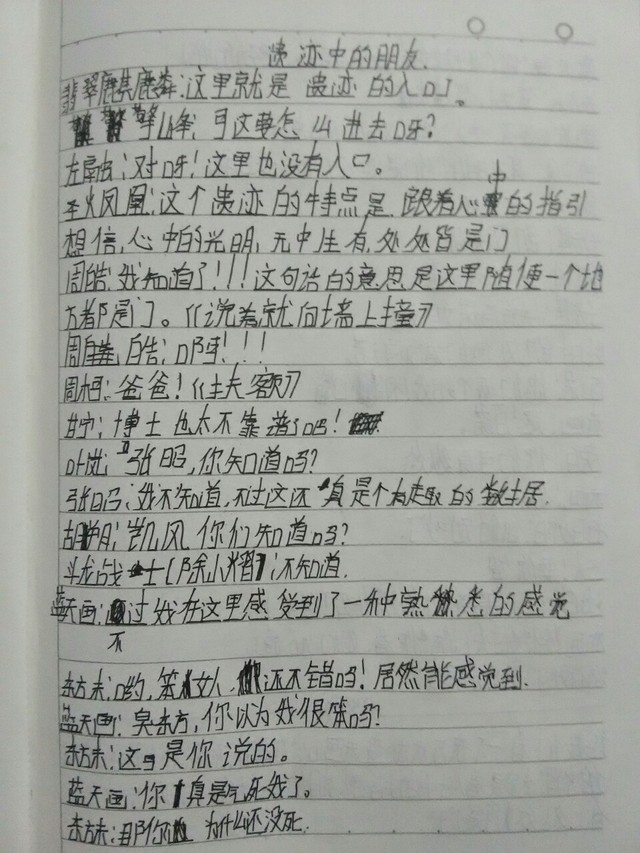 遗迹中的朋友
翡翠麒麟：这里就是 遗迹 的入口了。
这要怎么进去呀？
对呀！这里也没有入口。
圣火凤凰：这个遗迹的特点是 跟着心中的指引
想信，心中的光明，无中生有，处处皆是门
周皓：我知道了！！！这句话的意思是这里随便一个地
方都是门。《说着就向墙上撞》
皓：啊！！！
周柯：爸爸！《扶额》
甘宁：博士也太不靠谱了吧！
叶岚：张昭，你知道吗？
张昭：我不知道，不过这还真是个有趣的数结居
胡玥：凯风你们知道吗？
斗龙战士（除小熠）：不知道。
蓝天画：不过我在这里感受到了一种熟悉的感觉
东方末：哟，笨女人，还不错吗！居然能感觉到.
蓝天画：臭东方，你以为我很笨吗？
东方末：这可是你说的。
蓝天画：你真是气死我了。
东方末：那你为什么还没死.